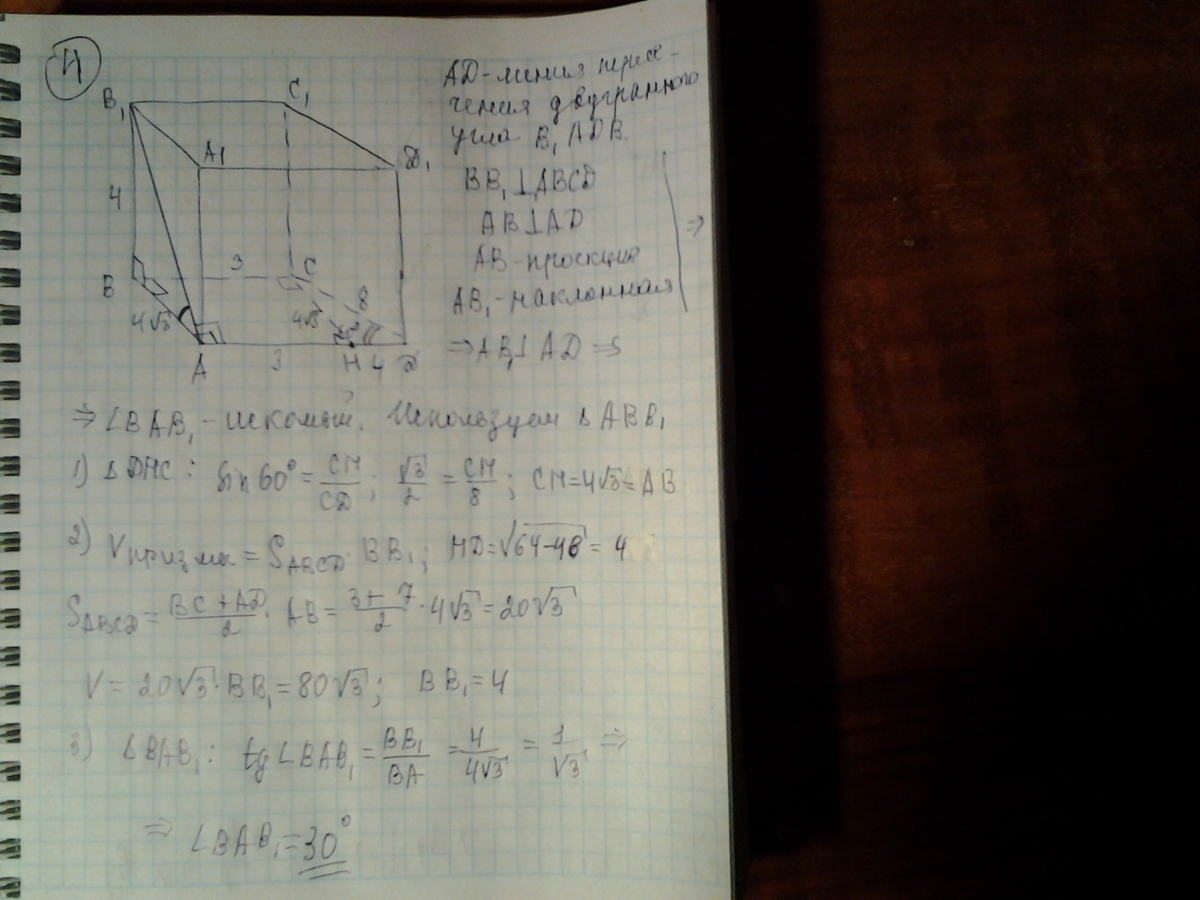 4
B₁
C₁
A1
D₁
4
B
3
C
4√3
4√3
8
A
3
H
4
D
AD-линия пересе-
чения двугранного
угла B₁ADB.
BB₁⊥ABCD
AB⊥AD
AB-проекция
AB₁-наклонная
⇒
⇒AB₁⊥AD ⇒
⇒ ∠BAB₁ - искомый. Используем △ABB₁
1) △DHC: sin 60° = CH/CD; √3/2 = CH/8; CH=4√3=AB
2) Vпризмы = S_ABCD · BB₁; HD=√64-48 = 4
S_ABCD = BC+AD/2 · AB = 3+7/2 · 4√3 = 20√3
V = 20√3·BB₁ = 80√3; BB₁ = 4
3) △BAB₁: tg∠BAB₁ = BB₁/BA = 4/4√3 = 1/√3 ⇒
⇒ ∠BAB₁ = 30°